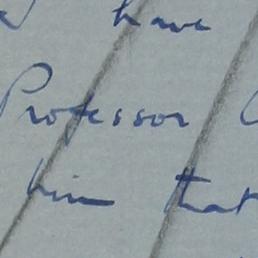 have
Professor
him that